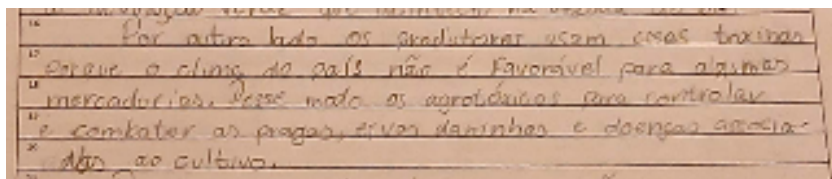 Por outro lado os produtores usam esses toxinas
porque o clima do país não é favorável para algumas
mercadorias. Desse modo os agrotóxicos para controlar
e combater as pragas, ervas daninhas e doenças associa-
das ao cultivo.